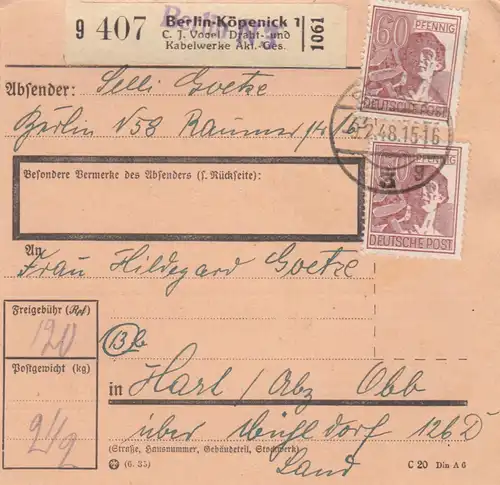 9 407
Berlin-Köpenick 1
C. J. Vogel Draht- und
Kabelwerke Akt.-Ges.
1061
60 PFENNIG
DEUTSCHE POST
Absender: Selli Goetze
Berlin N58 Raumerstr
.2.48.15-16
PFENNIG
DEUTSCHE POST
Besondere Vermerke des Absenders (s. Rückseite):
An
Frau Hildegard Goetze
Freigebühr (Rpf)
120
13b
Postgewicht (kg)
2 1/2
in Harl / Abz Obb
über Mühldorf 126 D
(Straße, Hausnummer, Gebäudeteil, Stockwerk)
Land
(6. 35)
C 20 Din A 6